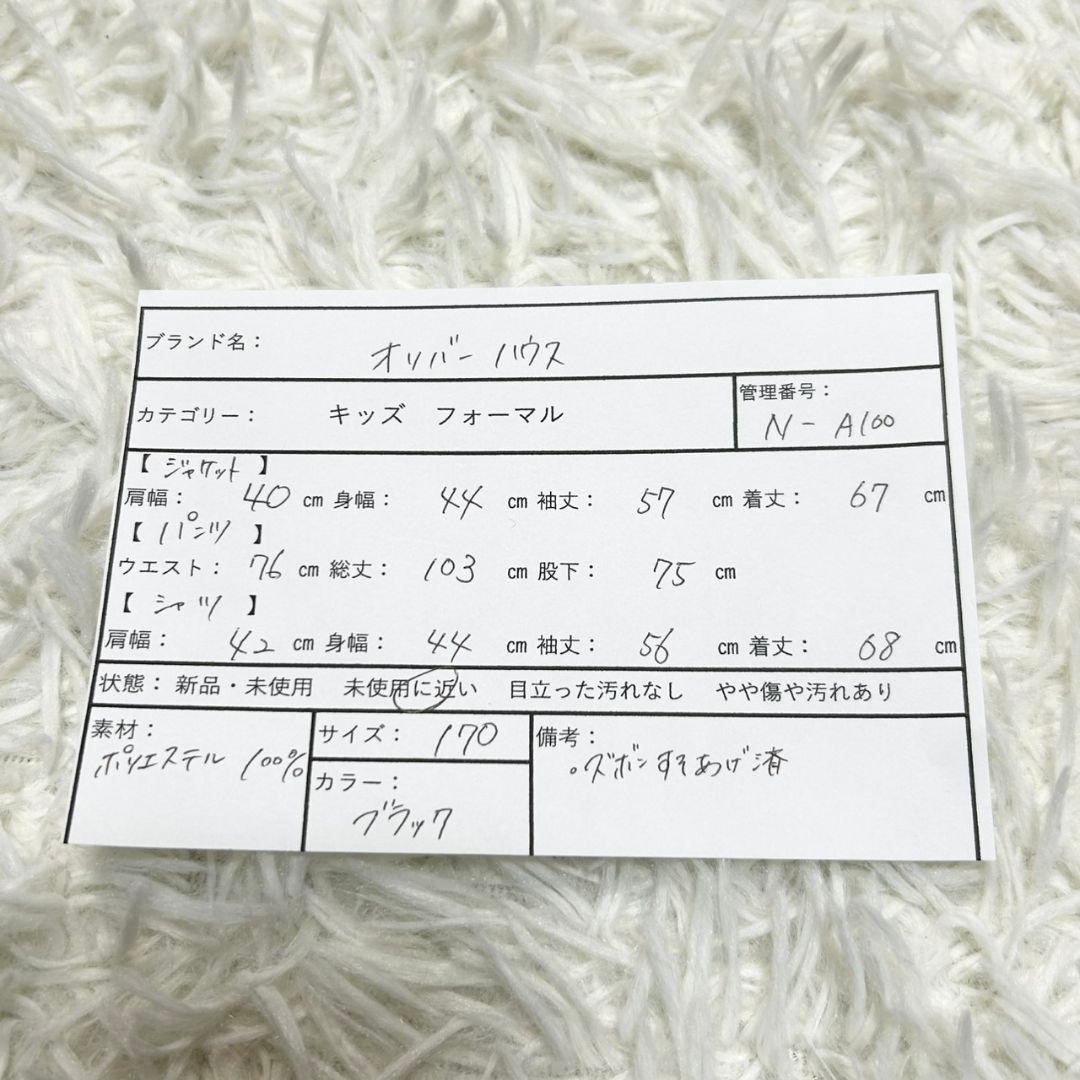 ブランド名： オリバーハウス
カテゴリー： キッズ フォーマル
管理番号： N-A100
【 ジャケット 】
肩幅： 40 cm 身幅： 44 cm 袖丈： 57 cm 着丈： 67 cm
【 パンツ 】
ウエスト： 76 cm 総丈： 103 cm 股下： 75 cm
【 シャツ 】
肩幅： 42 cm 身幅： 44 cm 袖丈： 56 cm 着丈： 68 cm
状態：新品・未使用 未使用に近い 目立った汚れなし やや傷や汚れあり
素材：
ポリエステル 100%
サイズ： 170
カラー：
ブラック
備考：
。ズボンすそあげ済